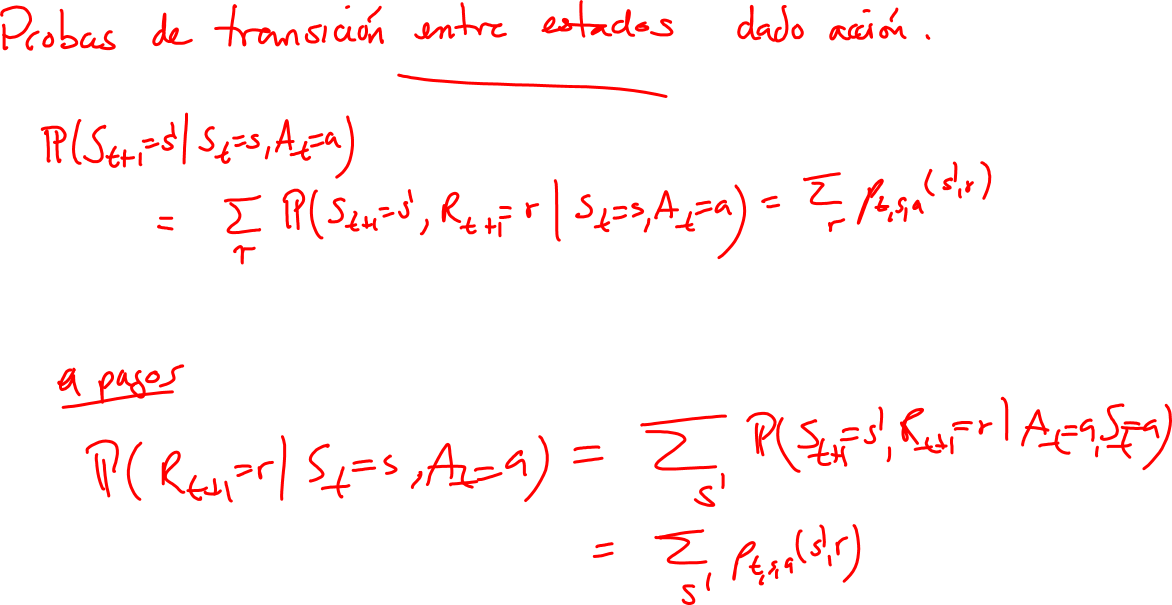 Probas de transición entre estados dado acción.
ℙ(S_{t+1}=s'|S_t=s,A_t=a)
= Σ_r ℙ(S_{t+1}=s', R_{t+1}=r | S_t=s,A_t=a) = Σ_r p_{t,s,a}(s',r)
a pagos
ℙ(R_{t+1}=r|S_t=s,A_t=a) = Σ_{s'} ℙ(S_{t+1}=s',R_{t+1}=r|A_t=a,S_t=a)
= Σ_{s'} p_{t,s,a}(s',r)